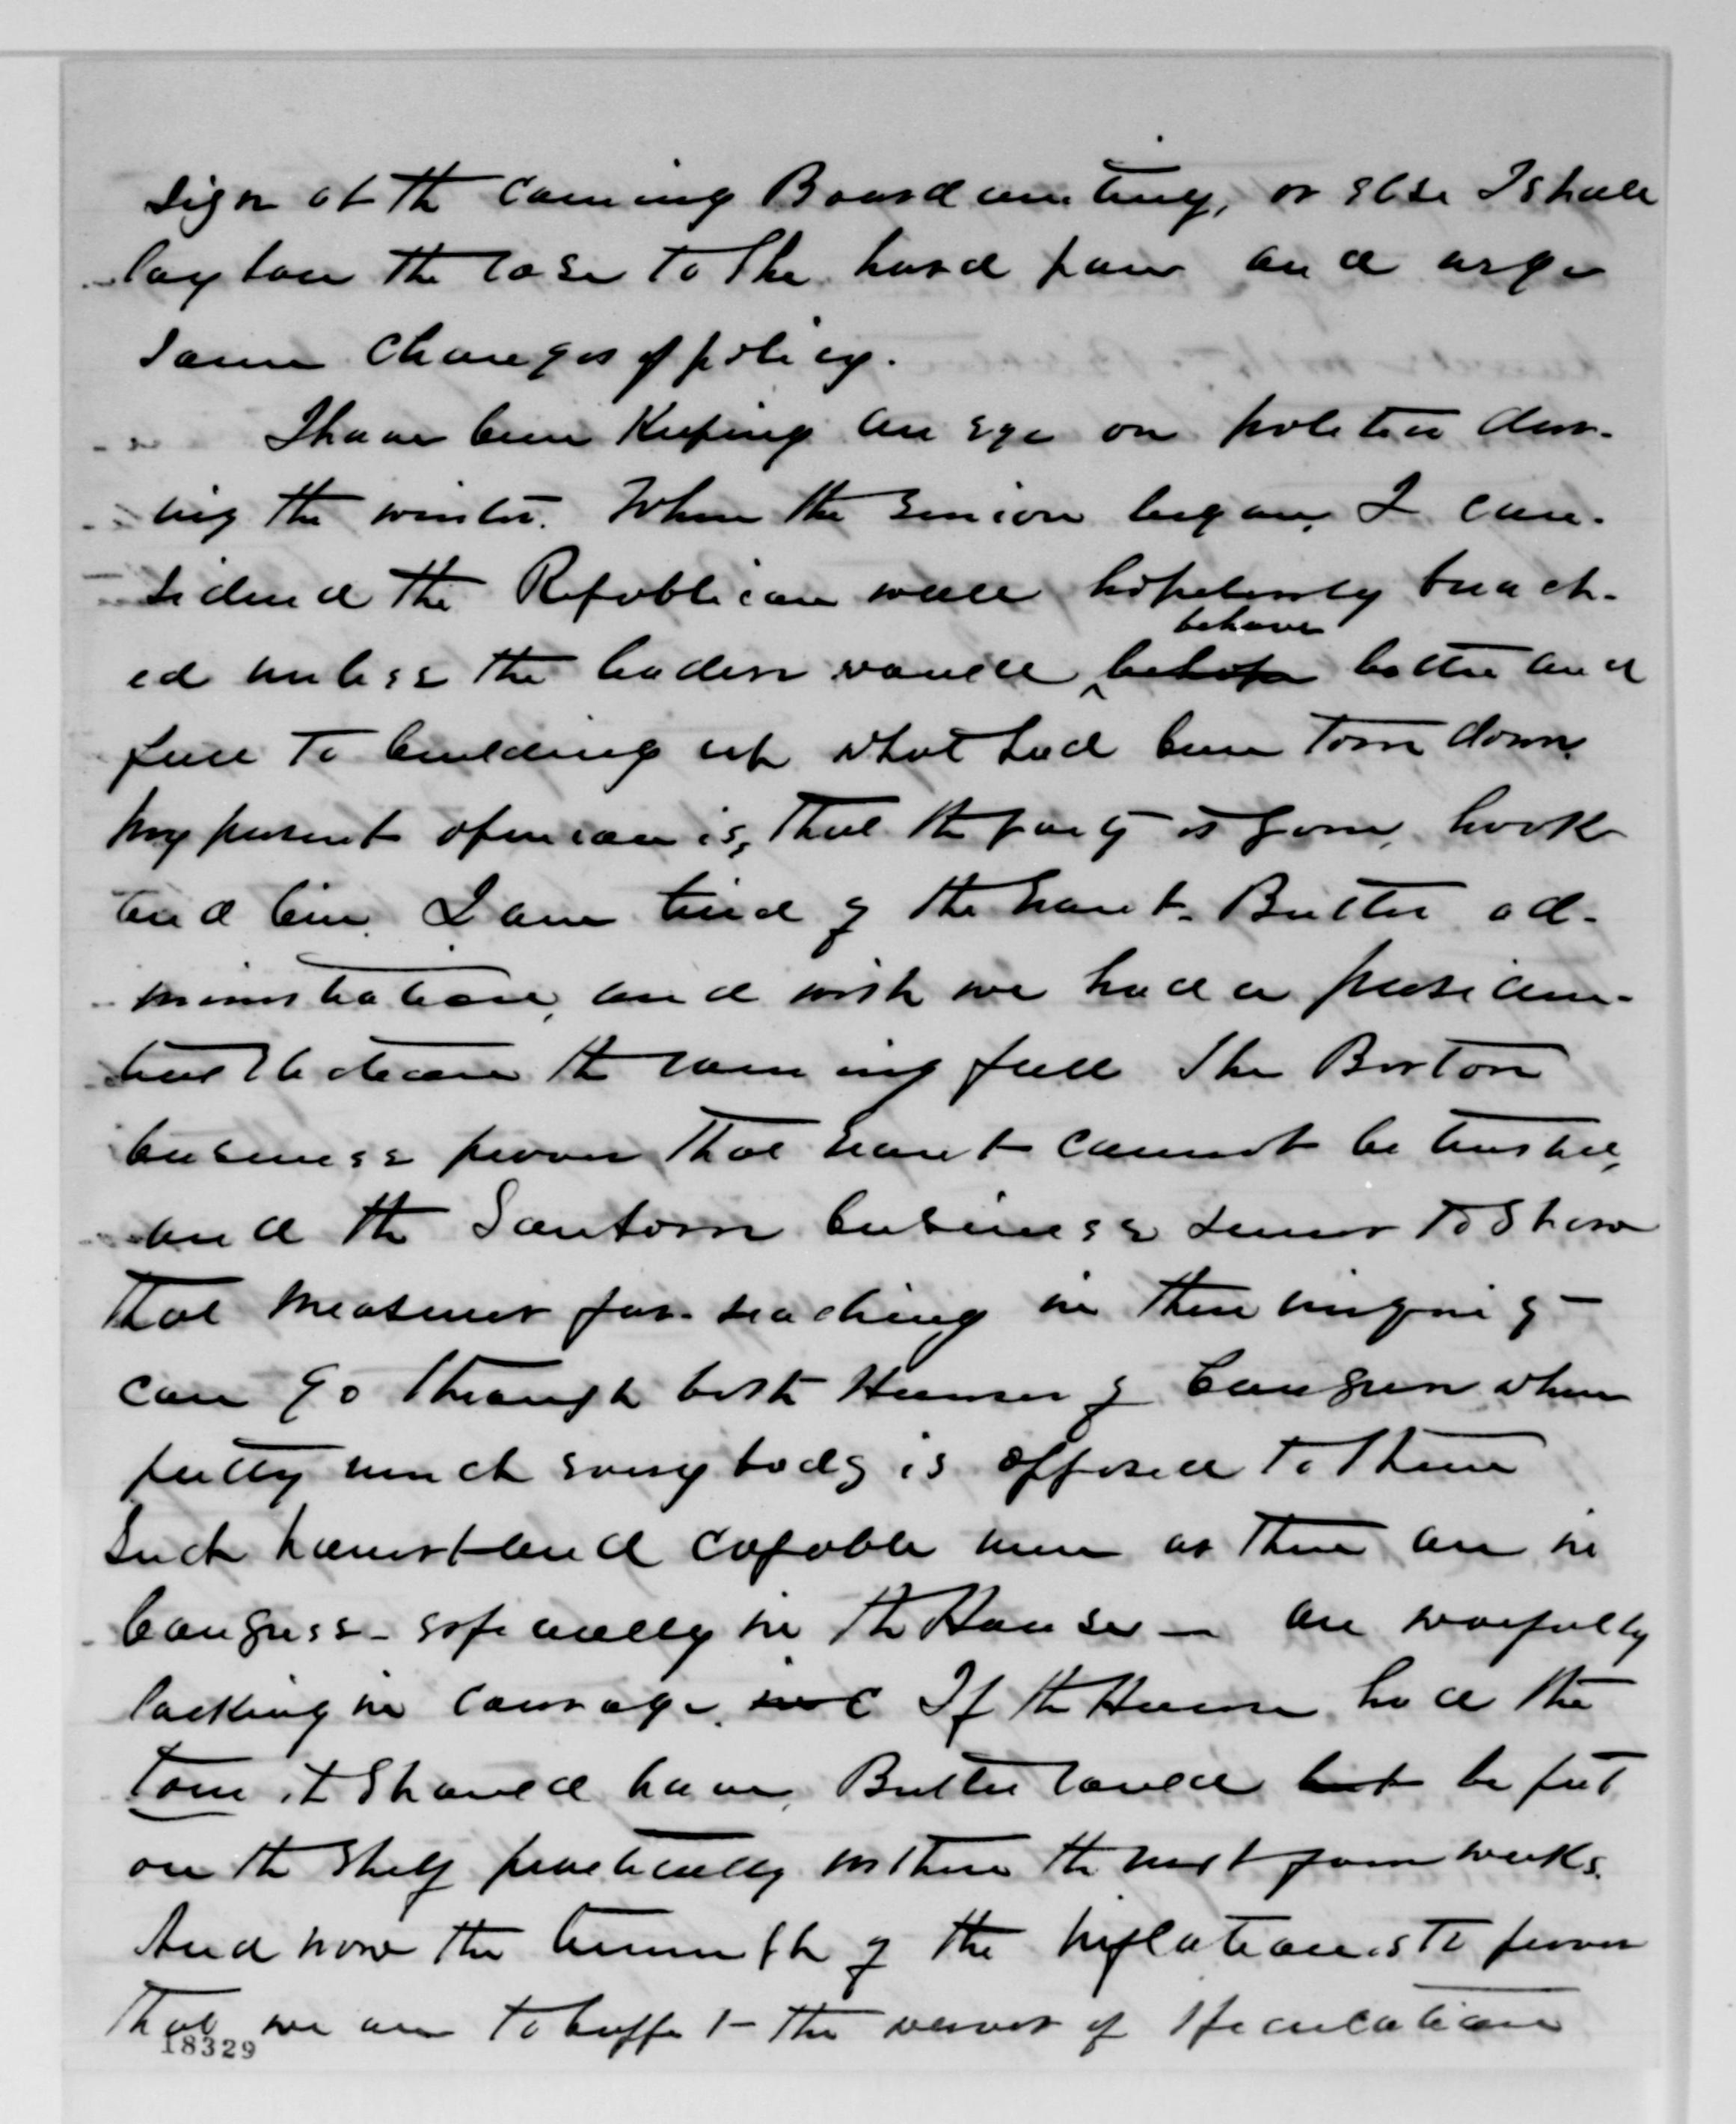 sign at the coming Board meeting, or else I shall
lay bare the case to the hard pan and urge
some changes of policy.
I have been keeping an eye on politics dur-
ing the winter. When the session began, I con-
sidered the Republican wall hopelessly breach-
behave
ed unless the leaders would behave better and
fall to building up what had been torn down.
My present opinion is, that the party is gone, hook
and line. I am tired of the Grant-Butler ad-
ministration, and wish we had a presiden-
tial election the coming fall. The Boston
business proves that Grant cannot be trusted,
and the Sanborn business seems to show
that measures far-reaching in their iniquity
can go through both Houses of Congress when
pretty much everybody is opposed to them
Such honest and capable men as there are in
Congress - especially in the House - are woefully
lacking in courage. If the House had the
tone it should have, Butler could be put
on the shelf practically within the next four weeks.
And now the triumph of the inflationists proves
that we are to buffet the waves of speculation
18329